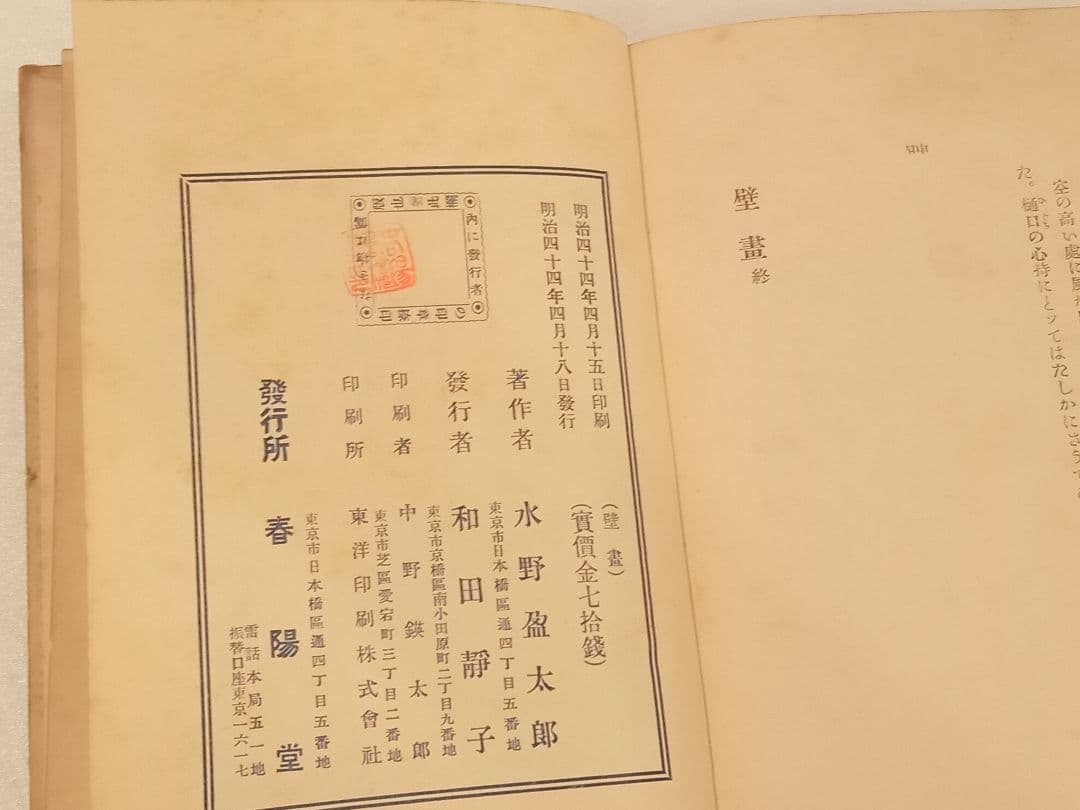 空の高い處に風が
た。樋口の心持にとッてはたしかにさうであ
壁畫 終
明治四十四年四月十五日印刷
明治四十四年四月十八日發行
(壁畫)
(實價金七拾錢)
著作者 水野盈太郎
東京市日本橋區通四丁目五番地
發行者 和田靜子
東京市京橋區南小田原町二丁目九番地
印刷者 中野鍈太郎
東京市芝區愛宕町三丁目二番地
印刷所 東洋印刷株式會社
東京市日本橋區通四丁目五番地
發行所 春陽堂
電話本局五一地
振替口座東京一六一七
內に發行者